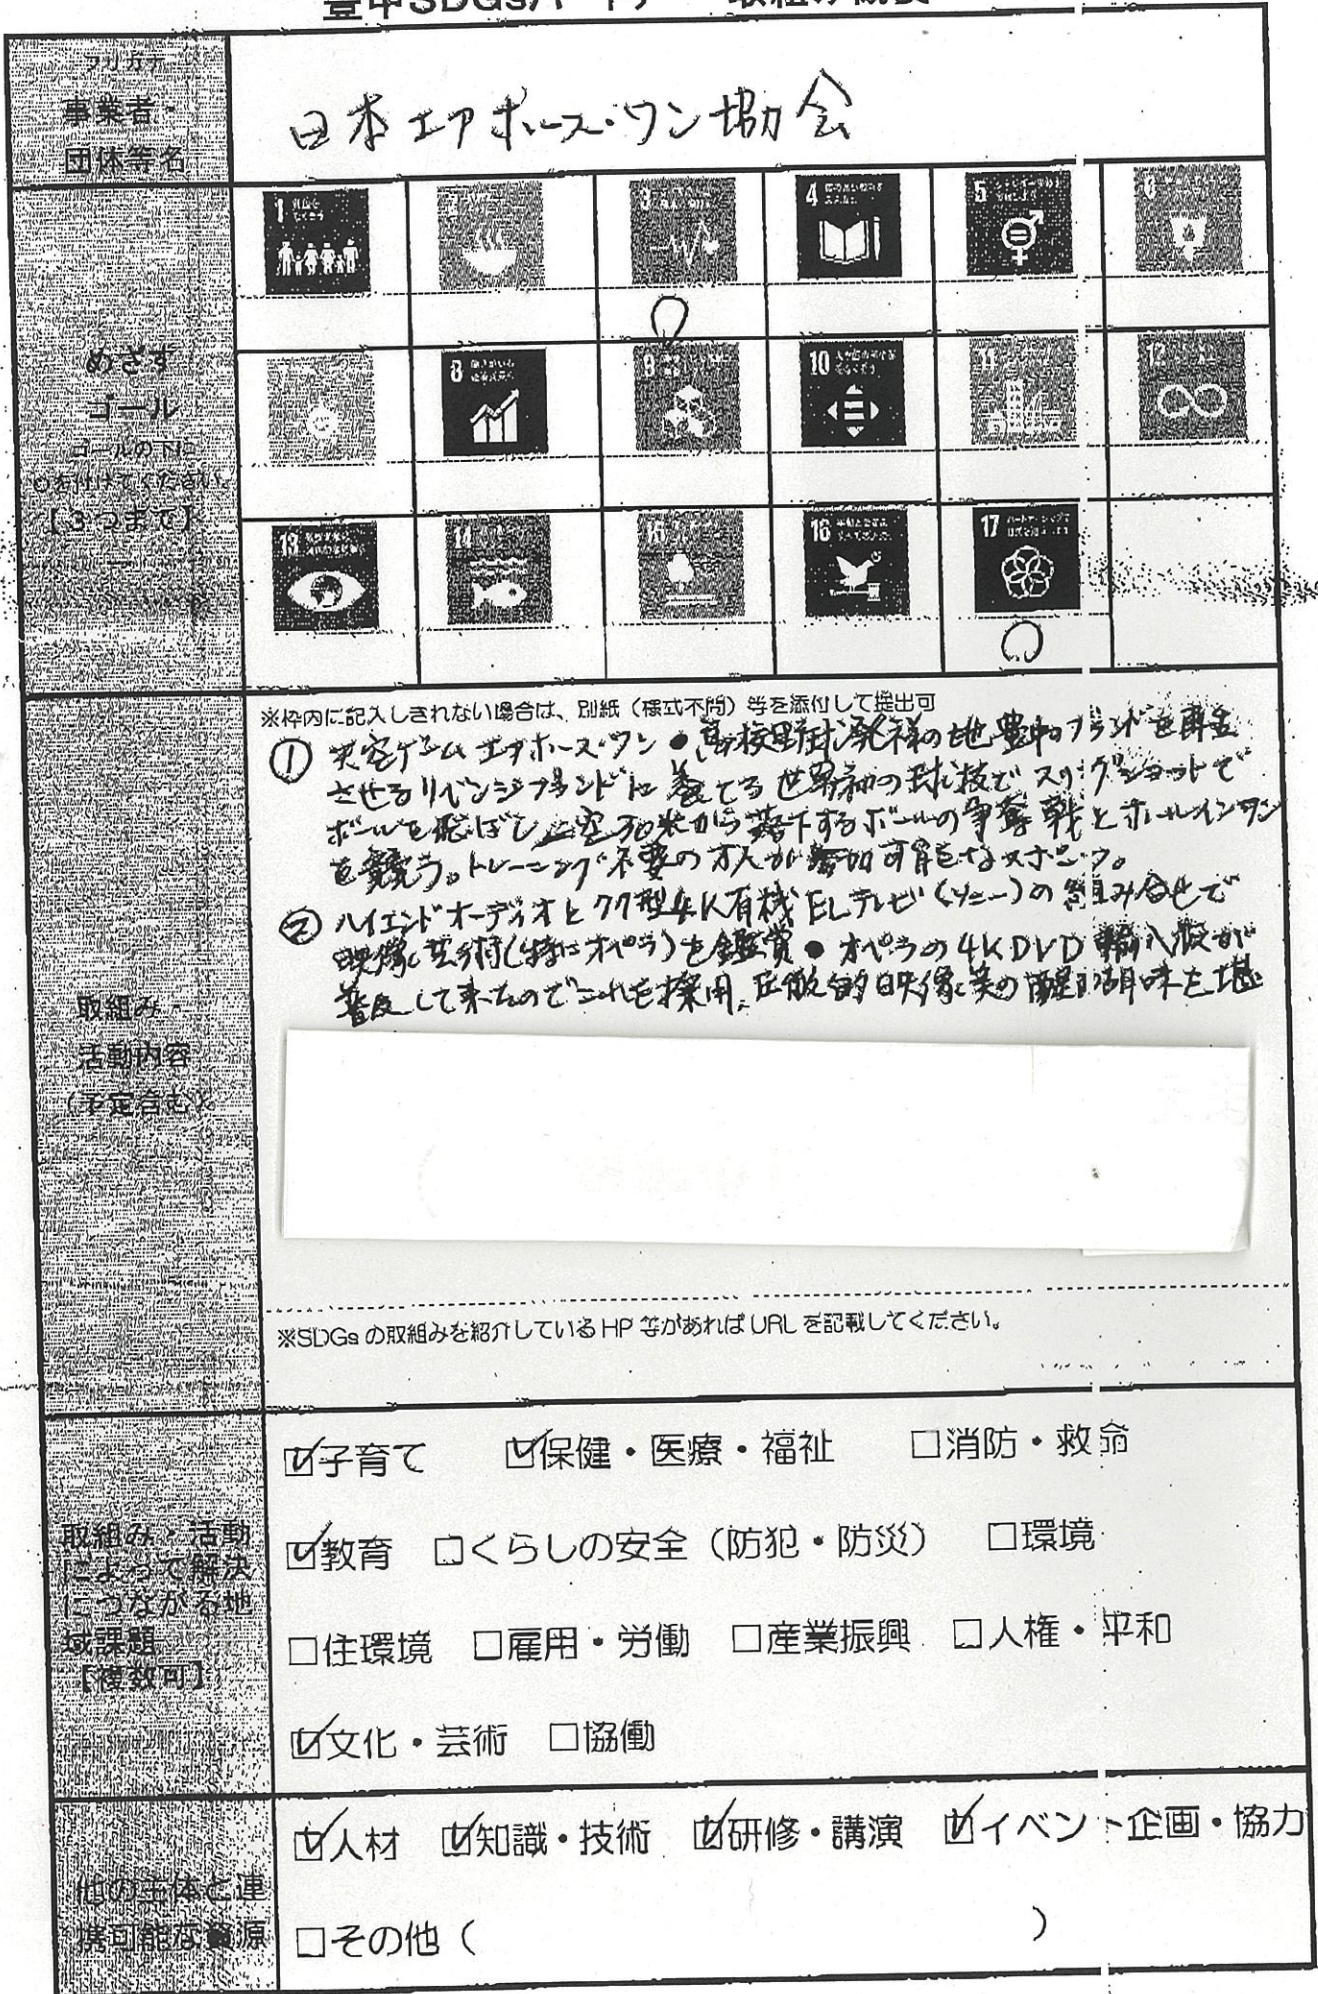 豊中SDGsパートナー 取組み概要
フリガナ
事業者・
団体等名
日本エアホース・ワン協会
めざす
ゴール
ゴールの下に
○を付けてください。
【3つまで】
1 貧困を
なくそう
2
3
4 質の高い教育を
みんなに
5
6
8 働きがいも
経済成長も
9
10
11
12
13
14
15
16
17 パートナーシップで
目標を達成しよう
※枠内に記入しきれない場合は、別紙（様式不問）等を添付して提出可
① ゲーム エアホース・ワン ● 高校野球発祥の地豊中のブランドを再生
させるリベンジブランドに育てる世界初の球技でスリングショットで
ボールを飛ばし上空30米から落下するボールの争奪戦とホールインワン
を競う。トレーニング不要の万人が参加可能なスポーツ。
② ハイエンドオーディオと77型4K有機ELテレビ(ソニー)の組み合せで
映像芸術(特にオペラ)を鑑賞 ● オペラの4KDVD輸入版が
普及して来たのでこれを採用、圧倒的映像美の醍醐味を堪
取組み・
活動内容
（予定含む）
※SDGs の取組みを紹介している HP 等があれば URL を記載してください。
取組み・活動
によって解決
につながる地
域課題
【複数可】
☑子育て ☑保健・医療・福祉 □消防・救命
☑教育 □くらしの安全（防犯・防災） □環境
□住環境 □雇用・労働 □産業振興 □人権・平和
☑文化・芸術 □協働
他の主体と連
携可能な資源
☑人材 ☑知識・技術 ☑研修・講演 ☑イベント企画・協力
□その他（ ）